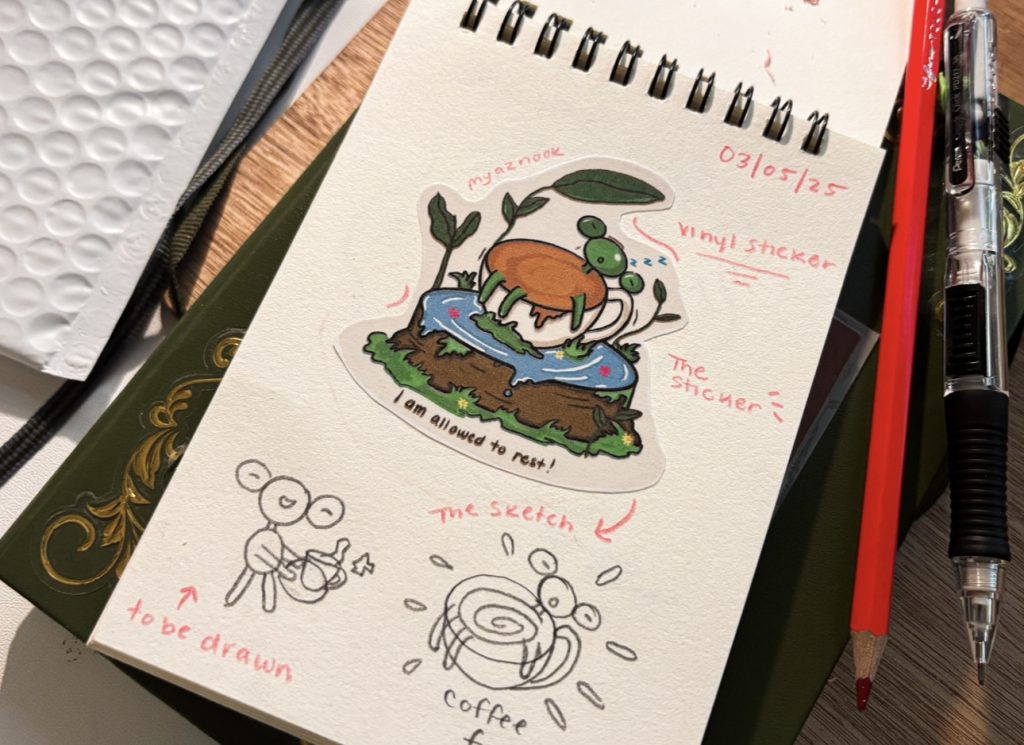 03/05/25
myaznook
vinyl sticker
z z z
The
sticker
I am allowed to rest!
The sketch
to be drawn
coffee